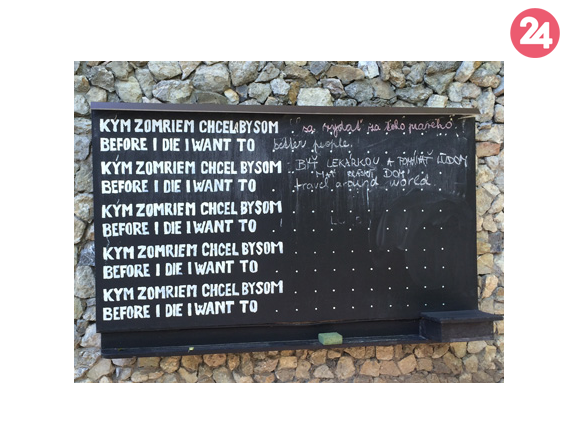 24
KÝM ZOMRIEM CHCEL BY SOM sa vydať za toho pravého
BEFORE I DIE I WANT TO better people.
KÝM ZOMRIEM CHCEL BY SOM BYŤ LEKÁRKOU A POMÁHAŤ ĽUĎOM
MAŤ DOM
BEFORE I DIE I WANT TO travel around world
KÝM ZOMRIEM CHCEL BY SOM
BEFORE I DIE I WANT TO
KÝM ZOMRIEM CHCEL BY SOM
BEFORE I DIE I WANT TO
KÝM ZOMRIEM CHCEL BY SOM
BEFORE I DIE I WANT TO